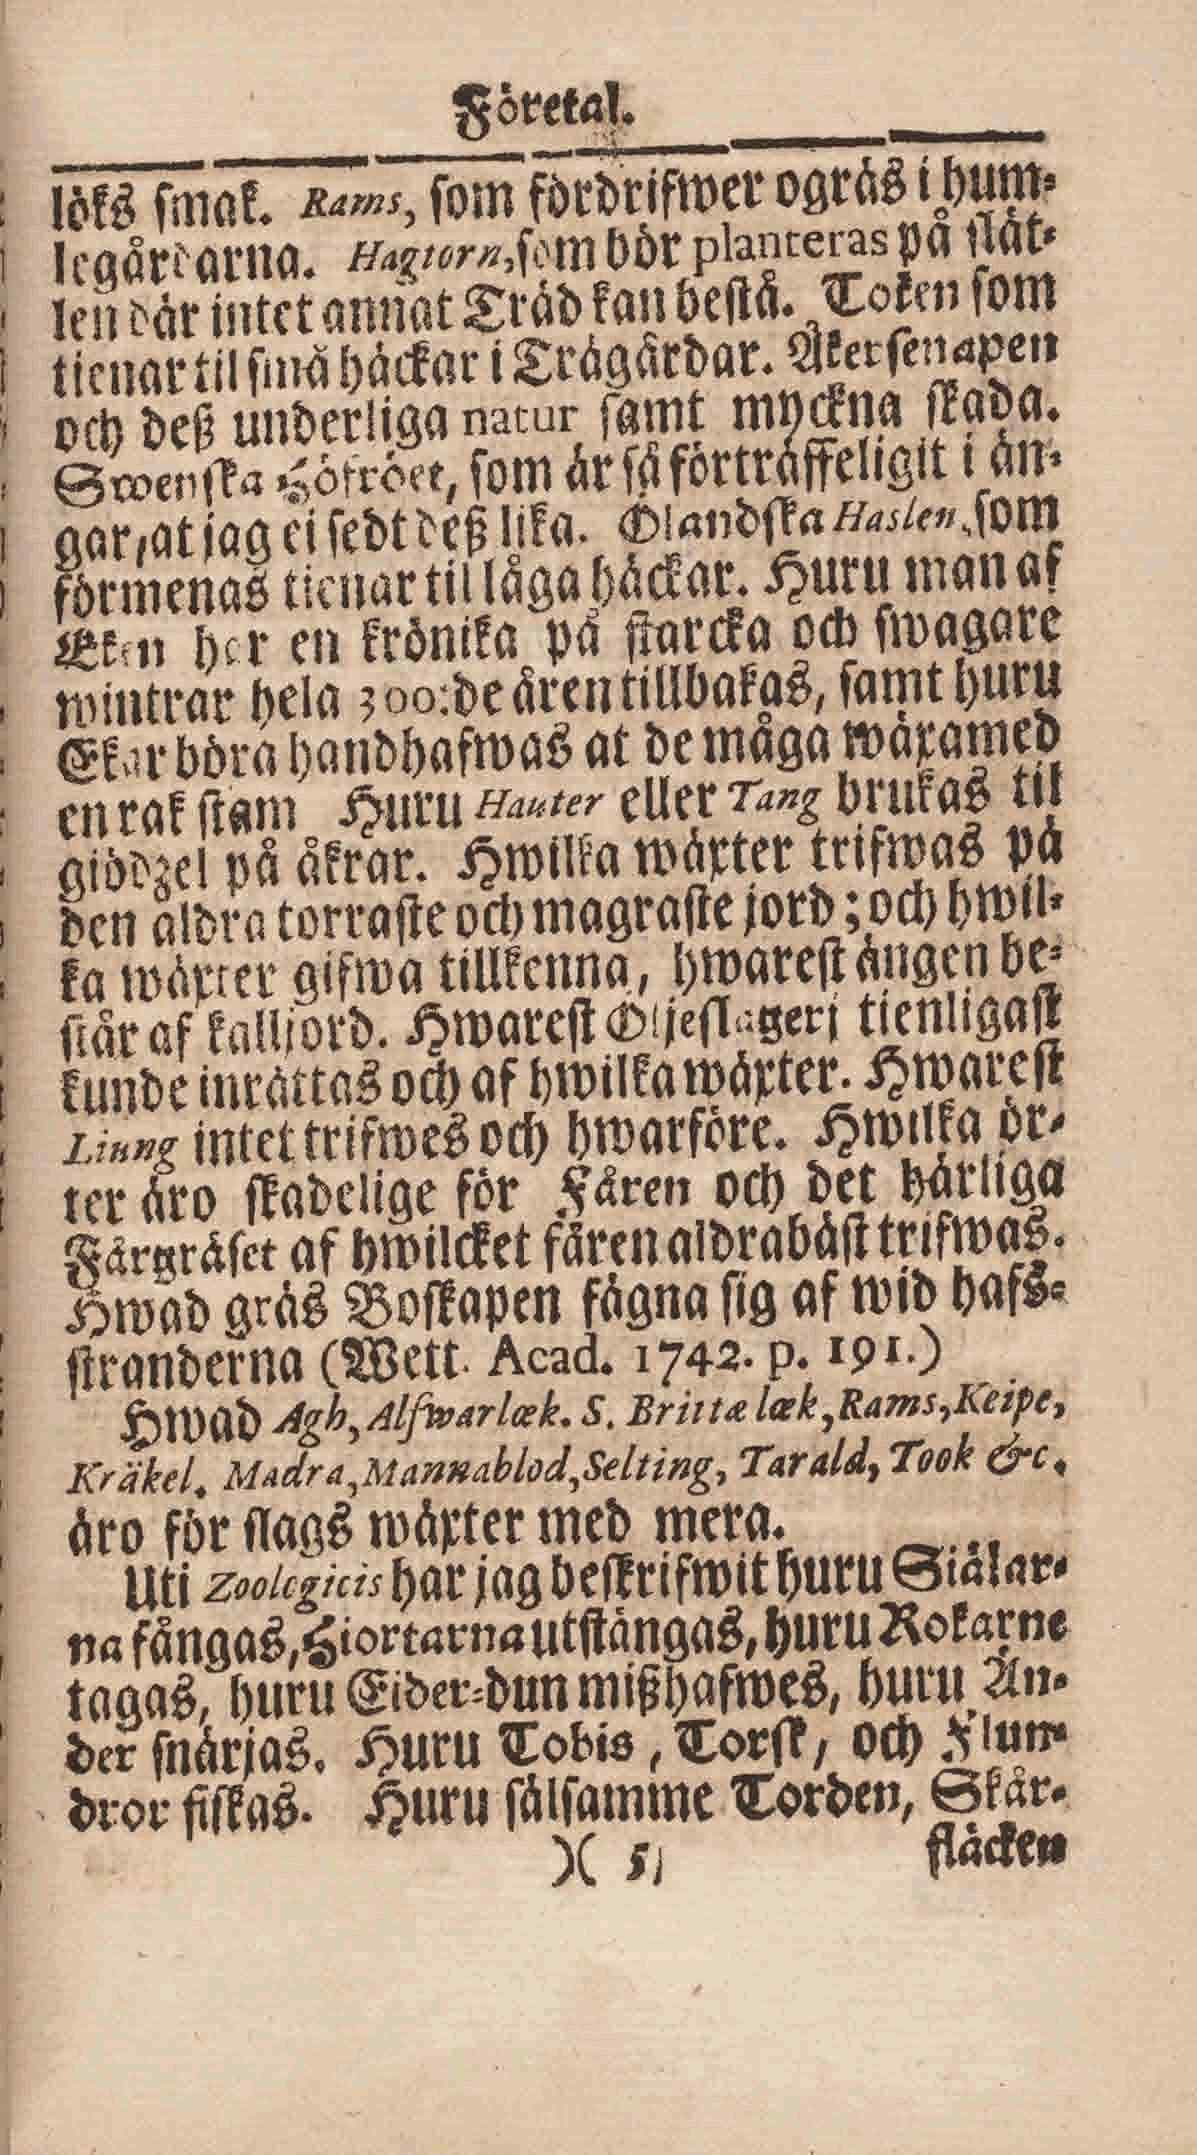 Företal.
löks smak. Rams, som fördrifwer ogräs i hum-
legårdarna. Hagtorn, som bör planteras på slät-
len där intet annat Träd kan bestå. Token som
tienar til små häckar i Trägårdar. Åkersenapen
och deß underliga natur samt myckna skada.
Swenska Höfröet, som är så förträffeligit i än-
gar, at jag ei sedt deß lika. Ölandska Haslen, som
förmenas tienar til låga häckar. Huru man af
Eken har en krönika på starcka och swagare
wintrar hela 300:de åren tillbakas, samt huru
Ekar böra handhafwas at de måga wäxa med
en rak stam Huru Hauter eller Tang brukas til
giödzel på åkrar. Hwilka wäxter trifwas på
den aldra torraste och magraste jord; och hwil-
ka wäxter gifwa tillkenna, hwarest ängen be-
står af kalljord. Hwarest Oljeslageri tienligast
kunde inrättas och af hwilka wäxter. Hwarest
Liung intet trifwes och hwarföre. Hwilka ör-
ter äro skadelige för Fåren och det härliga
Fårgräset af hwilcket fåren aldrabäst trifwas.
Hwad gräs Boskapen fägna sig af wid hafs-
stranderna (Wett. Acad. 1742. p. 191.)
Hwad Agh, Alfwarlæk. S. Brittæ læk, Rams, Keipe,
Kräkel. Madra, Mannablod, Selting, Tarald, Took &c.
äro för slags wäxter med mera.
Uti Zoologicis har jag beskrifwit huru Siälar-
na fångas, Hiortarna utstängas, huru Rokarne
tagas, huru Eider-dun mißhafwes, huru Än-
der snärjas. Huru Tobis, Torsk, och Flun-
dror fiskas. Huru sälsamme Torden, Skår-
)( 5
fläcken